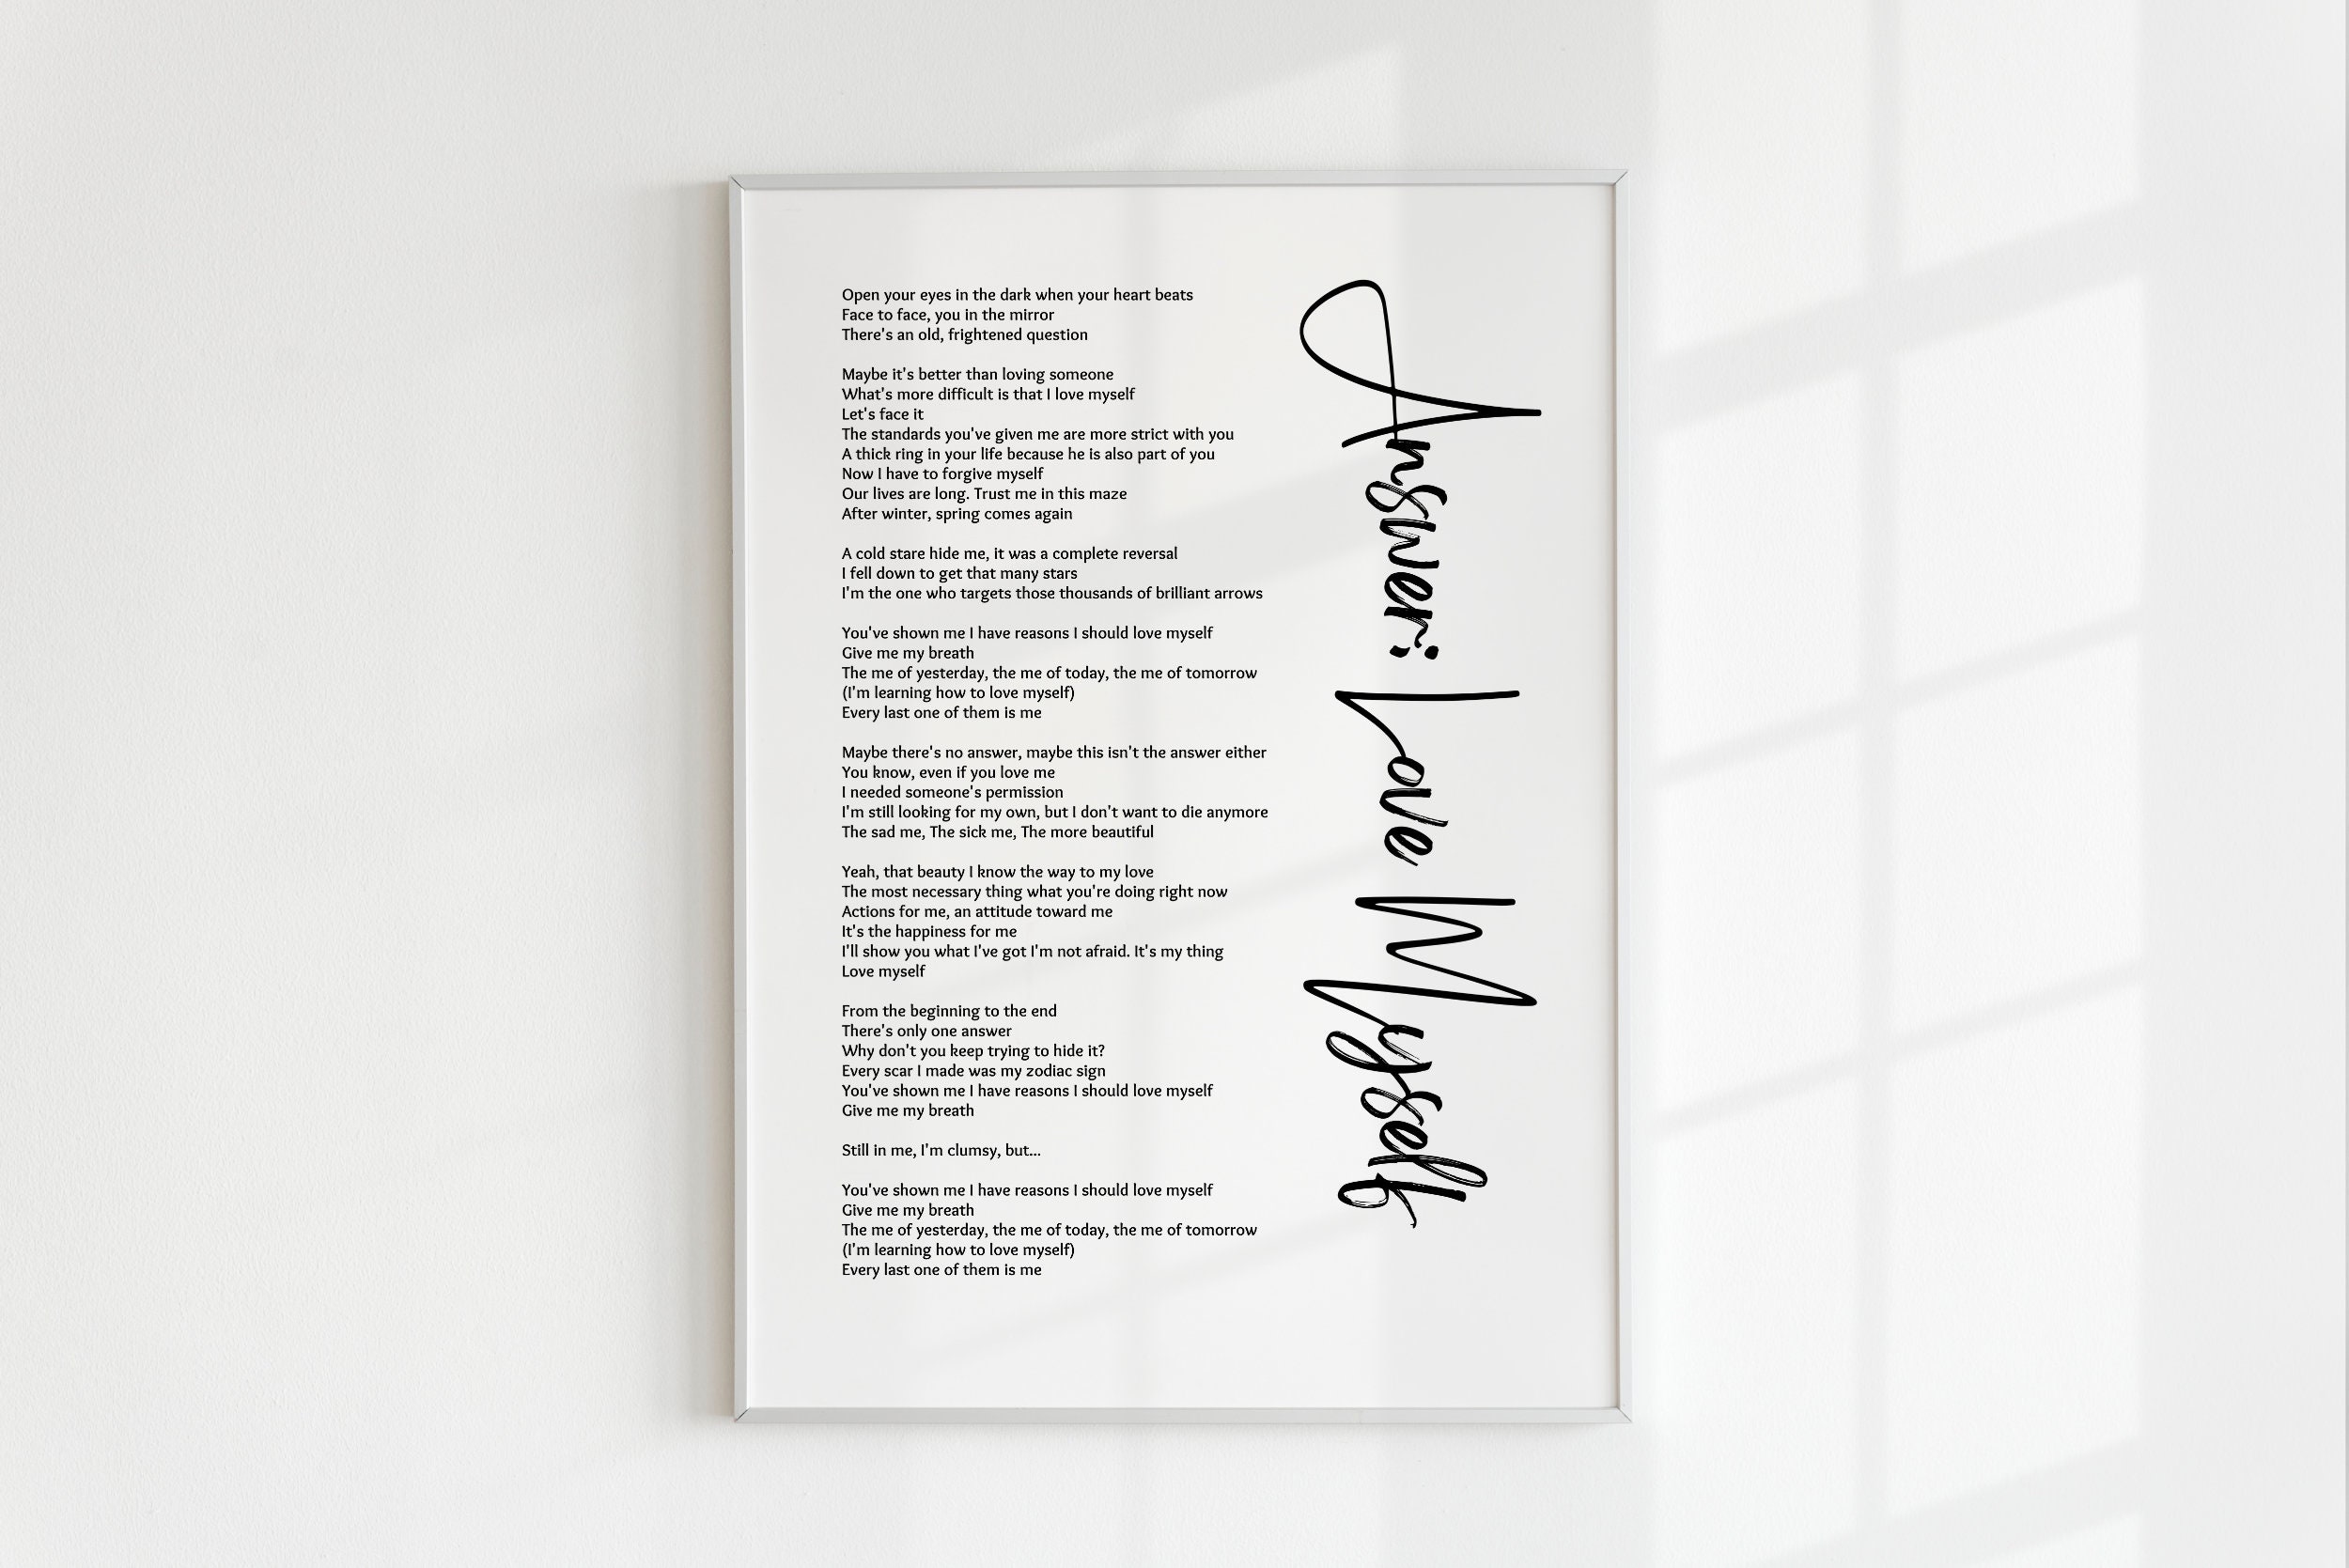 Open your eyes in the dark when your heart beats
Face to face, you in the mirror
There's an old, frightened question
Maybe it's better than loving someone
What's more difficult is that I love myself
Let's face it
The standards you've given me are more strict with you
A thick ring in your life because he is also part of you
Now I have to forgive myself
Our lives are long. Trust me in this maze
After winter, spring comes again
A cold stare hide me, it was a complete reversal
I fell down to get that many stars
I'm the one who targets those thousands of brilliant arrows
You've shown me I have reasons I should love myself
Give me my breath
The me of yesterday, the me of today, the me of tomorrow
(I'm learning how to love myself)
Every last one of them is me
Maybe there's no answer, maybe this isn't the answer either
You know, even if you love me
I needed someone's permission
I'm still looking for my own, but I don't want to die anymore
The sad me, The sick me, The more beautiful
Yeah, that beauty I know the way to my love
The most necessary thing what you're doing right now
Actions for me, an attitude toward me
It's the happiness for me
I'll show you what I've got I'm not afraid. It's my thing
Love myself
From the beginning to the end
There's only one answer
Why don't you keep trying to hide it?
Every scar I made was my zodiac sign
You've shown me I have reasons I should love myself
Give me my breath
Still in me, I'm clumsy, but...
You've shown me I have reasons I should love myself
Give me my breath
The me of yesterday, the me of today, the me of tomorrow
(I'm learning how to love myself)
Every last one of them is me
Answer: Love Myself